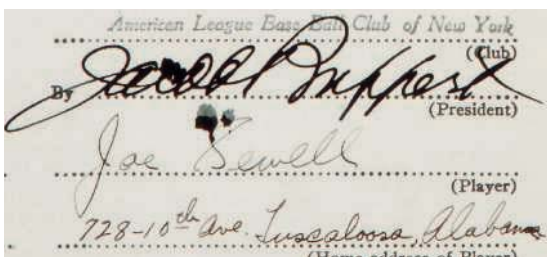 American League Base Ball Club of New York
(Club)
By Jacob Ruppert
(President)
Joe Sewell
(Player)
728-10th Ave. Tuscaloosa, Alabama
(Home address of Player)